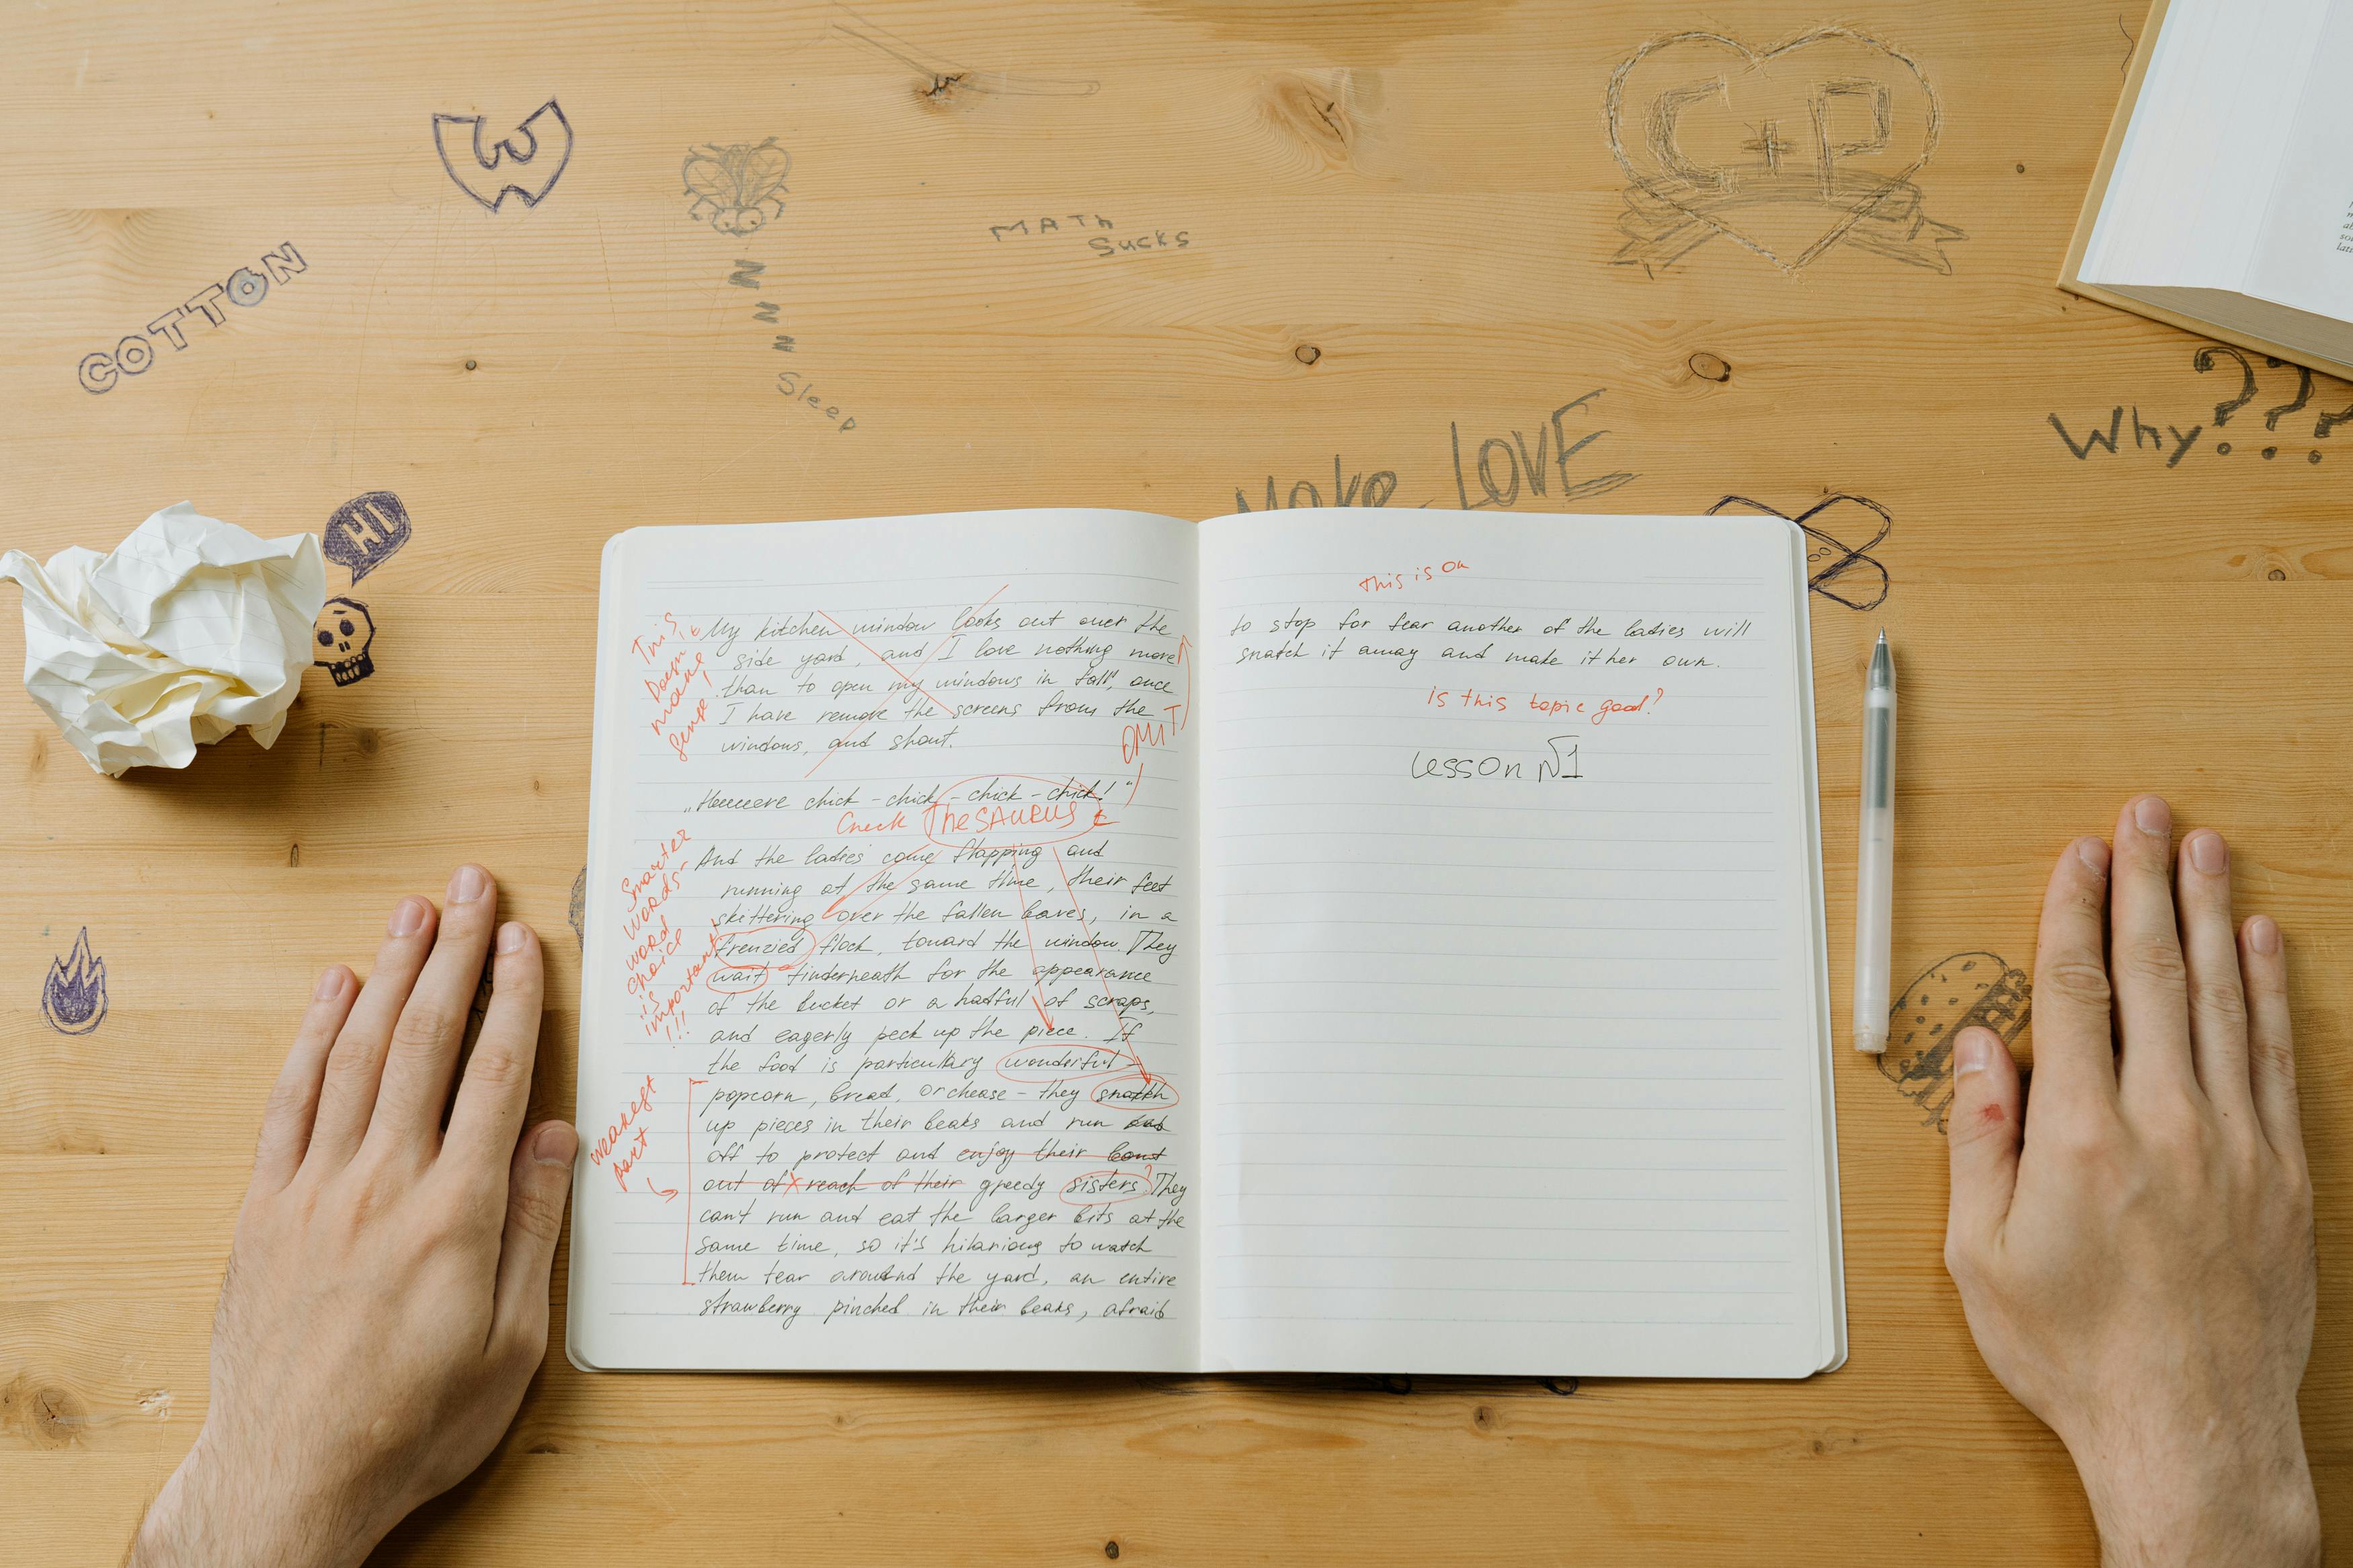 W
C+P
MATh
Sucks
COTTON
Z
Z
Z
Z
Sleep
Make LOVE
Why???
HI
This
Doesn't
make
sense!
My kitchen window looks out over the
side yard, and I love nothing more
than to open my windows in fall, once
I have remove the screens from the
windows, and shout.
OMIT
„Heeeere chick - chick - chick - chick!"
Check TheSAURUS
And the ladies come flapping and
running at the same time, their feet
skittering over the fallen leaves, in a
frenzied flock, toward the window. They
wait underneath for the appearance
of the bucket or a hatful of scraps,
and eagerly peck up the piece. If
the food is particullary wonderful -
popcorn, bread, or chease - they snatch
up pieces in their beaks and run
off to protect and enjoy their
out of reach of their greedy sisters? They
can't run and eat the larger bits at the
same time, so it's hilarious to watch
them tear around the yard, an entire
strawberry pinched in their beaks, afraid
Smarter
words-
word
choice
is
important
!!!
weakest
part
This is OK
to stop for fear another of the ladies will
snatch it away and make it her own.
is this topic good?
Lesson №1